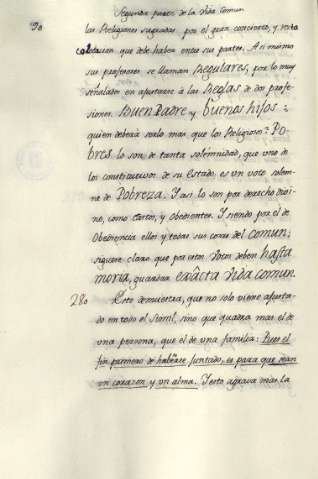 90
Segunda parte de la Vida Comun
las Religiones sagradas, por el gran concierto, y recta
que debe haber entre sus partes. Asi mismo
sus profesores se llaman Regulares, por lo muy
señalados en ajustarse à las Reglas de sus profe-
siones. Buen Padre y buenos hijos:
quien deberá serlo mas que los Religiosos? Po-
bres lo son de tanta solemnidad, que uno de
los constitutivos de su estado, es un voto solem-
ne de Pobreza. Y asi lo son por derecho Divi-
no, como Castos, y Obedientes. Y siendo por el de
Obediencia ellos y todas sus cosas del comun;
siguese claro que por estos Votos deben hasta
morir, guardar exàcta Vida comun.
280 Esto demuestra, que no solo viene ajusta-
do en todo el Simil, sino que quadra mas el de
una persona, que el de una familia: Pues el
fin primero de haberse juntado, es para que sean
un corazon y un alma. Y esto agrava mas la